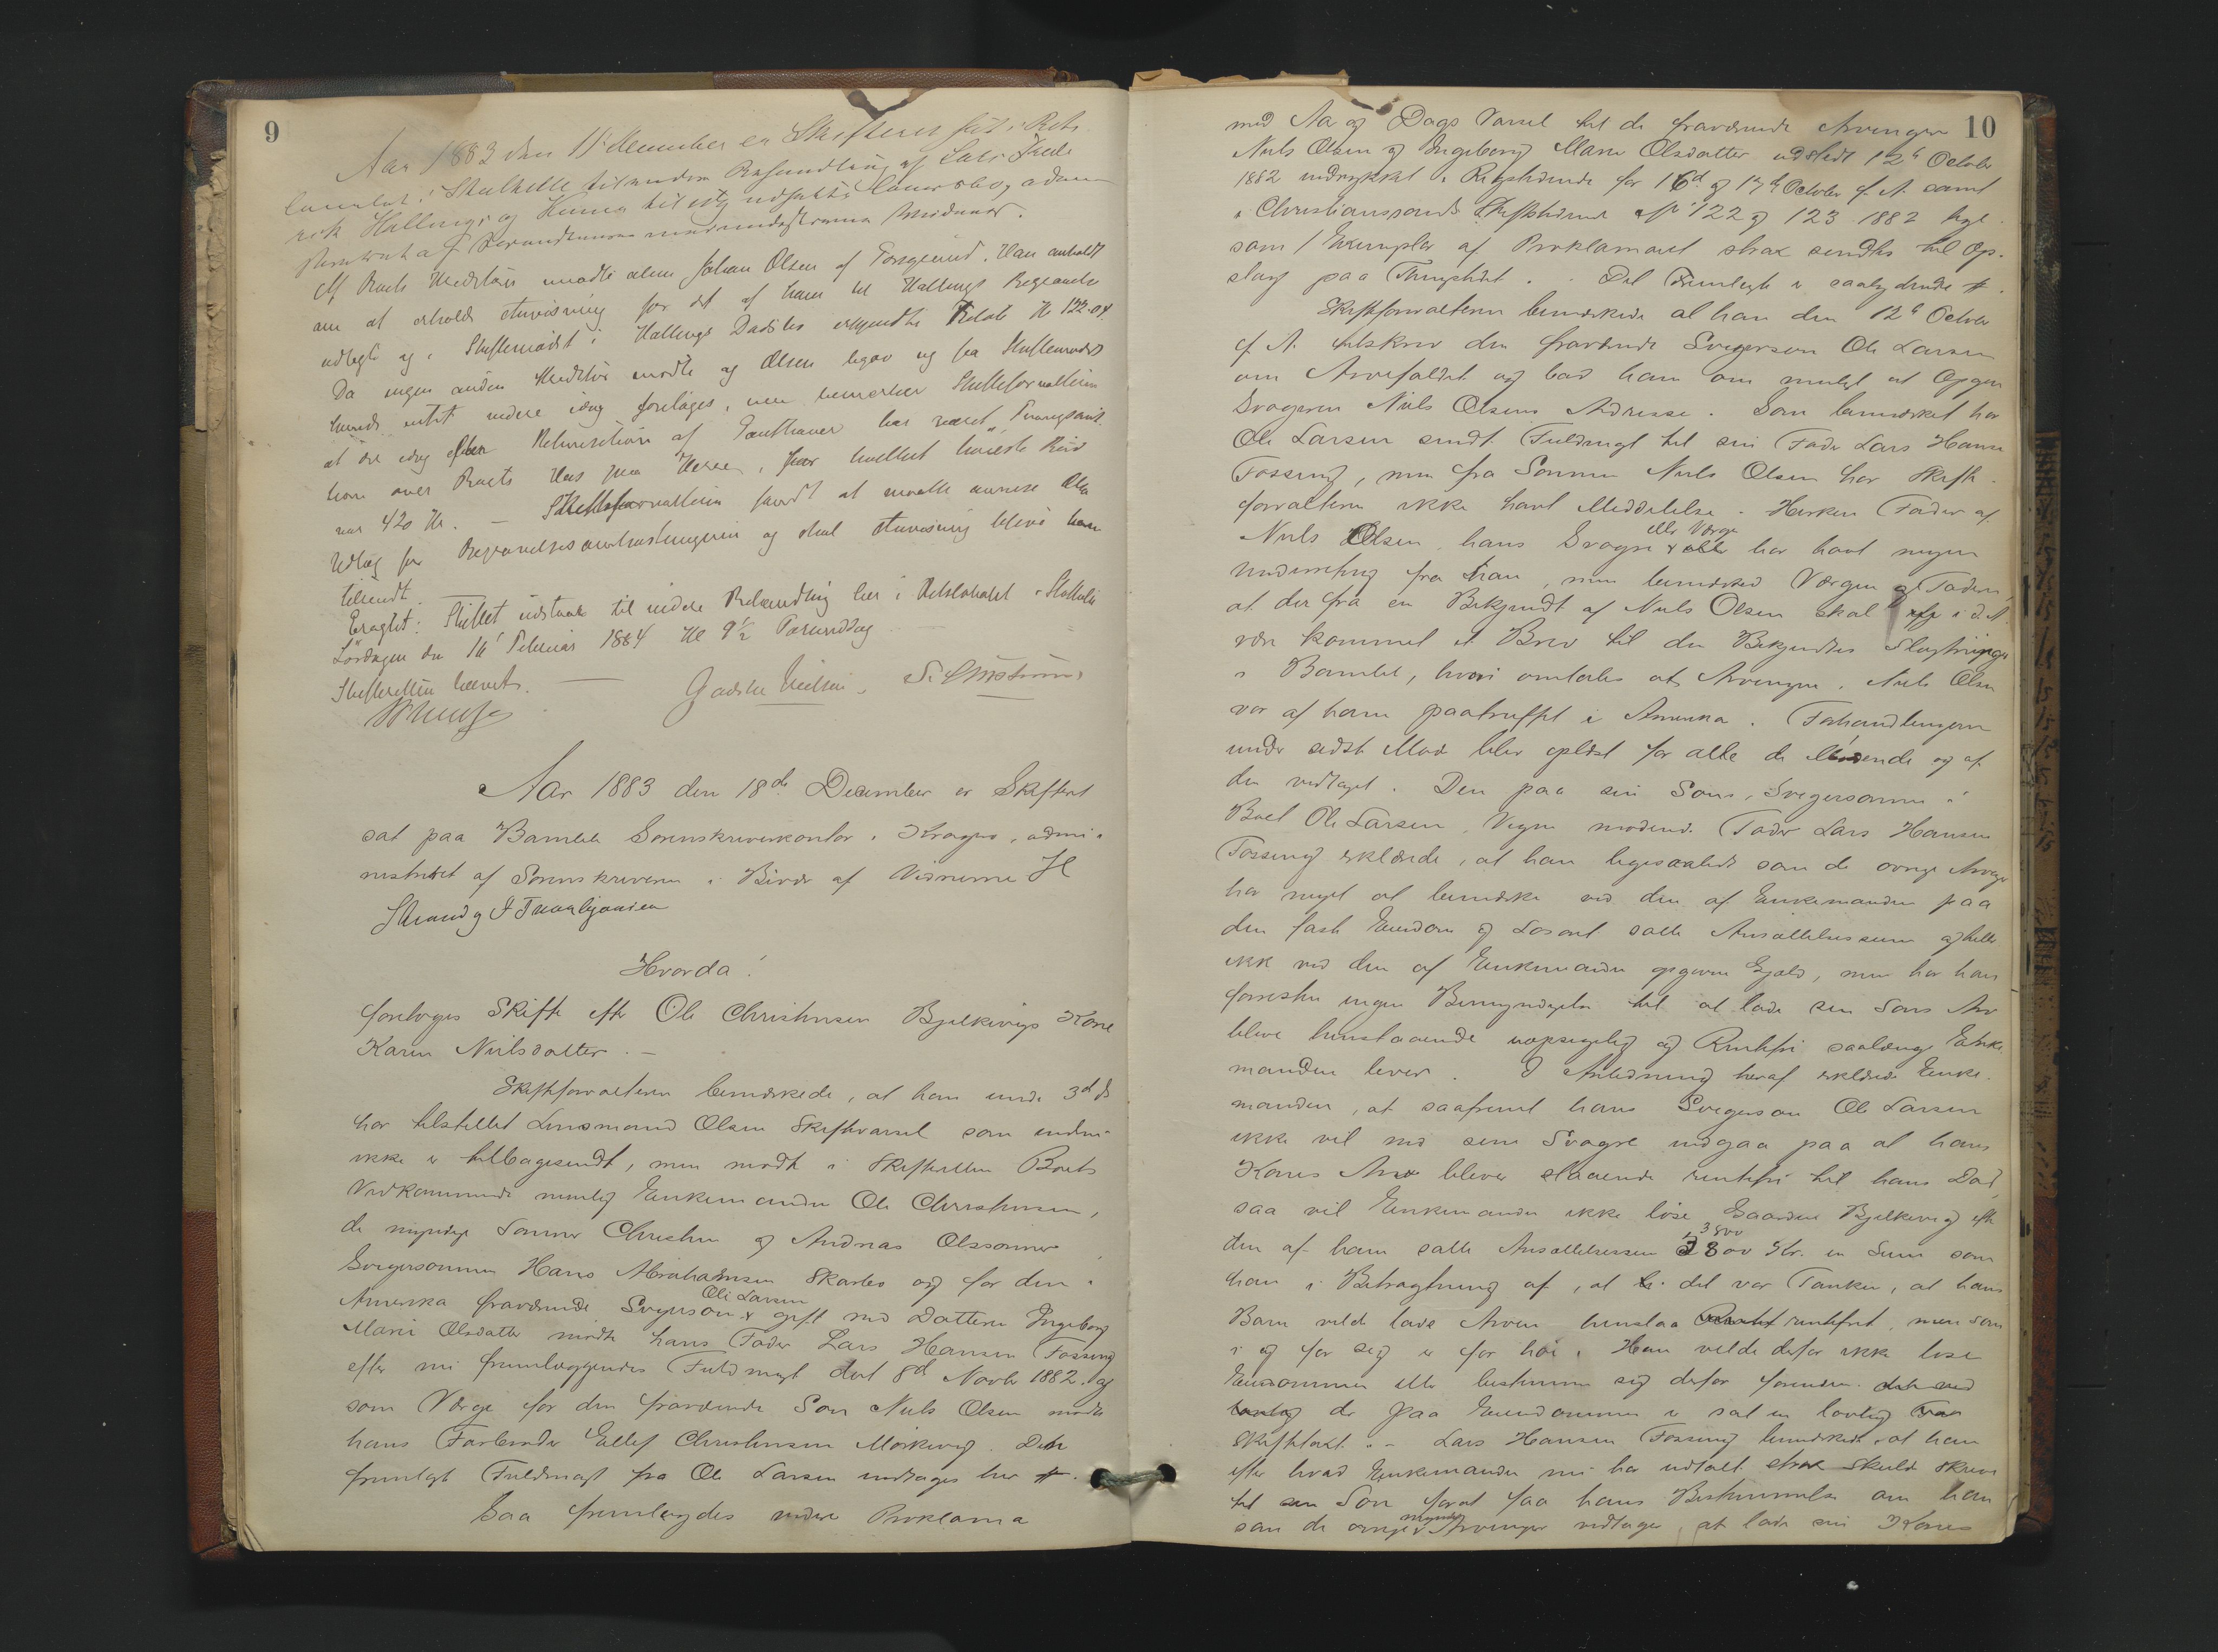 9
Aar 1883 den 15 December er Skifteret sat i Rets
lokalet i Stathelle til videre Behandling af Lars Fred
rik Hallings og Kones til idag udsatte
af Vidner.
Af Boets Kreditorer mødte alene Johan Olsen af Porsgrund. Han anholdt
om at erholde Anvisning for det af ham til Hallings Begravelse
udlagte og i Skiftemødet i Hallings Dødsbo Beløb Kr 122.04.
Da ingen anden Kreditor mødte og Olsen begav sig fra Skiftemødet
kunde intet videre idag foretages, men bemærker Skifteforvalteren
at der idag efter Rekvisition af har været Tvangsauk
tion over Boets Hus paa hvorfor høieste Bud
var 420 Kr. – Skifteforvalteren fandt at maatte anvise Olsen
Udlæg for Begravelsesomkostningerne og skal Anvisning blive ham
tilsendt.
Eragtet: Skiftet udstaar til videre Behandling her i Retslokalet i Stathelle
Lørdagen den 16 Februar 1884 Kl 9½ Formiddag
Skifteretten hævet.
Aar 1883 den 18de December er Skifteret
sat paa Bamble Sorenskriverkontor i Kragerø, admi-
nistreret af Sorenskriveren i Bivær af Vidnerne H
Strand og
Hvorda!
foretoges Skifte efter Ole Christensen Bjelkevigs Kone
Karen Nielsdatter. –
Skifteforvalteren bemærkede, at han under 3d ds
har tilstillet Lensmand Olsen Skiftevarsel som endnu
ikke er tilbagesendt, men mødte i Skifteretten Boets
Vedkommende nemlig Enkemanden Ole Christensen,
de myndige Sønner Christen og Andreas Olssønner
Svigersønnen Hans Abrahamsen Skarbo og for den i
Amerika fraværende Svigersøn Ole Larsen gift med Datteren Ingeborg
Marie Olsdatter mødte hans Fader Lars Hansen Fossing
efter nu fremlæggendes Fuldmagt dat 8d Novbr 1882. og
som Værge for den fraværende Søn Niels Olsen mødte
hans Farbroder Ellef Christensen Mørkevig. Den
fremlagte Fuldmagt fra Ole Larsen indtages her #.
Saa fremlagdes videre Proklama
10
med Aar og Dags Varsel til de fraværende Arvinger
Niels Olsen og Ingeborg Marie Olsdatter udstedt 12te October
1882 indrykket i Rigstidende for 16d og 17de October f. A. samt
i Christianssands Stiftstidende No 122 og 123 1882 lige-
som 1 Exemplar af Proklamaet strax sendtes til Op-
slag paa Thingstedet. Det Fremlagte er saalydende #.
Skifteforvalteren bemærkede at han den 12te October
f. A. tilskrev den fraværende Svigersøn Ole Larsen
om Arvefaldet og bad ham om muligt at Opgive
Svogeren Niels Olsens Adresse. Som bemærket har
Ole Larsen sendt Fuldmagt til sin Fader Lars Hansen
Fossing, men fra Sønnen Niels Olsen har Skifte-
forvalteren ikke havt Meddelelse. Hverken Fader af
Niels Olsen, hans Svogre eller Værge har havt nogen
Underretning fra ham, men bemærked Værgen og Faderen,
at der fra en Bekjendt af Niels Olsen skal i d. A.
være kommet et Brev til den Bekjendtes Slægtninge
i Bamble, hvori omtales at Arvingen Niels Olsen
var af ham paatruffet i Amerika. Forhandlingerne
under sidste Møde blev oplæst for alle de Mødende og af
dem vedtaget. Den paa sin Søns, Svigersønnen i
Boet Ole Larsen, Vegne mødende Fader Lars Hansen
Fossing erklærede, at han ligesaalidt som de øvrige Arvinger
har noget at bemærke ved den af Enkemanden paa
den faste Eiendom og Løsøret satte Ansættelsessum og heller
ikke ved den af Enkemanden opgivne Gjæld, men har han
forresten ingen Bemyndigelse til at lade sin Søns Arv
blive henstaaende uopsigelig og Rentefri saalænge Enke
manden lever. I Anledning heraf erklærede Enke-
manden, at saafremt hans Svigersøn Ole Larsen
ikke vil med sine Svogre indgaa paa at hans
Kones Arv bliver staaende rentefri til hans Død,
saa vil Enkemanden ikke løse Gaarden Bjelkevig efter
den af ham satte Ansættelsessum 3800 Kr. en Sum som
han i Betragtning af, at det var Tanken, at hans
Børn vilde lade Arven henstaa rentefrit, men som
i og for sig er for høi. Han vilde derfor ikke løse
Eiendommen eller bestemme sig derfor forinden
der paa Eiendommen er sat en lovlig
Skiftetaxt. – Lars Hansen Fossing bemærkede at han
efter hvad Enkemanden nu har udtalt strax skulde skrive
til sin Søn forat faa hans Bestemmelse om han
som de øvrige myndige Arvinger vedtager, at lade sin Kones